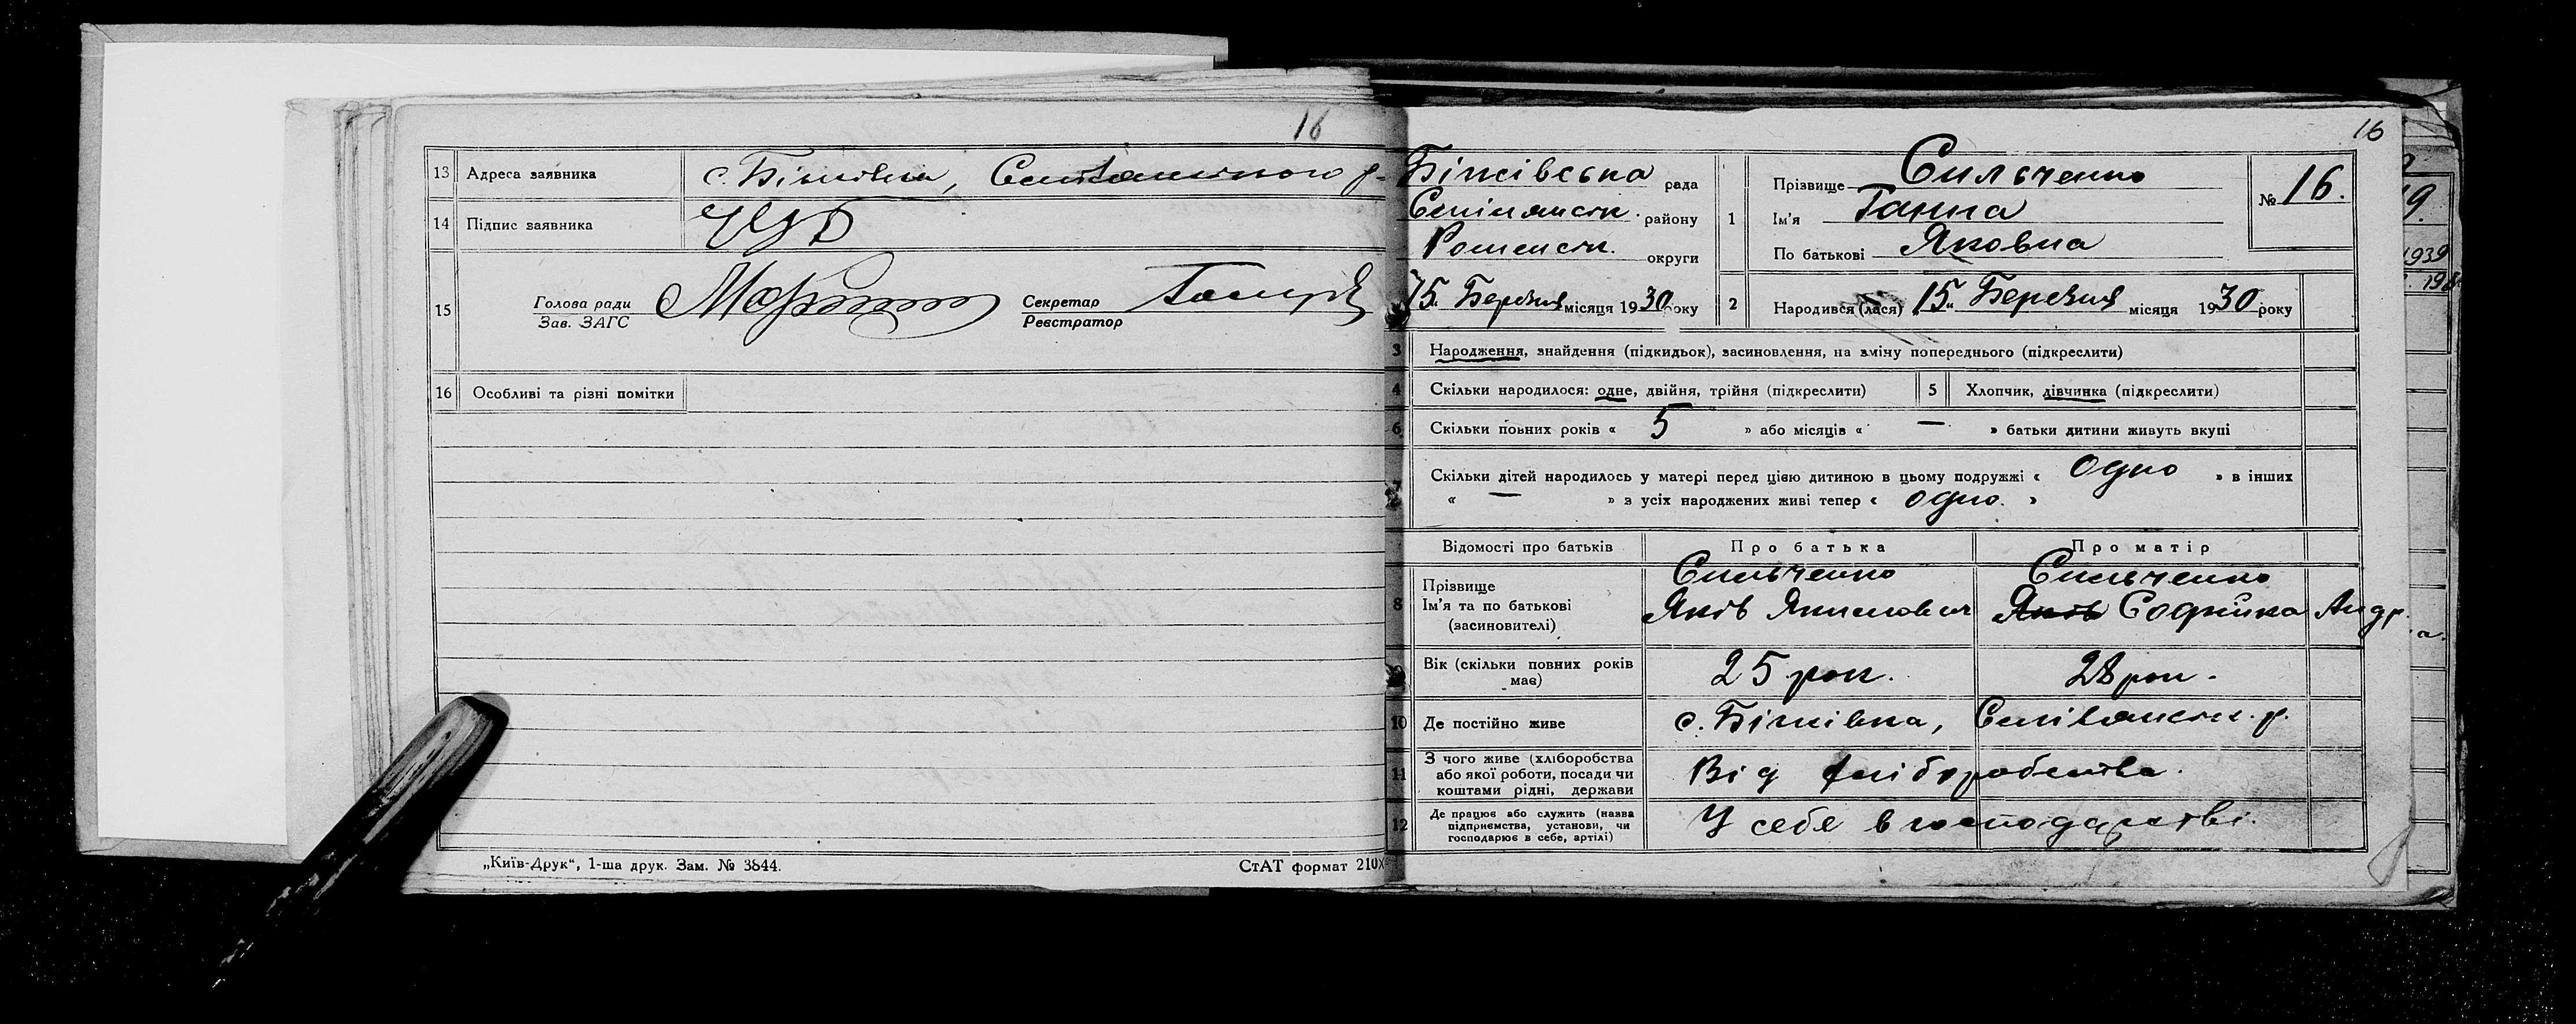 16
13 Адреса заявника с. Біжівка,
14 Підпис заявника
15 Голова ради Секретар
Зав. ЗАГС Реєстратор
16 Особливі та різні помітки
„Київ-Друк“, 1-ша друк. Зам. № 3844. СтАТ формат 210X
16
Біжівська рада
району
Роменськ. округи
15. Березня місяця 1930 року
1 Прізвище Сильченко
Ім'я Ганна
По батькові Яковна
№ 16.
2 Народився (лася) „15“ Березня місяця 1930 року
3 Народження, знайдення (підкидьок), засиновлення, на зміну попереднього (підкреслити)
4 Скільки народилося: одне, двійня, трійня (підкреслити) 5 Хлопчик, дівчинка (підкреслити)
6 Скільки повних років « 5 » або місяців « — » батьки дитини живуть вкупі
7 Скільки дітей народилось у матері перед цією дитиною в цьому подружжі « одно » в інших
« — » з усіх народжених живі тепер « одно. »
Відомості про батьків Про батька Про матір
8 Прізвище Сильченко Сильченко
Ім'я та по батькові Яків Якимович Яків Софійка Андр.
(засиновителі)
9 Вік (скільки повних років має) 25 рок. 28 рок.
10 Де постійно живе с. Біжівка, р.
11 З чого живе (хліборобства
або якої роботи, посади чи
коштами рідні, держави Від хліборобства.
12 Де працює або служить (назва
підприємства, установи, чи
господарює в себе, артілі) У себе в господарстві.
1939